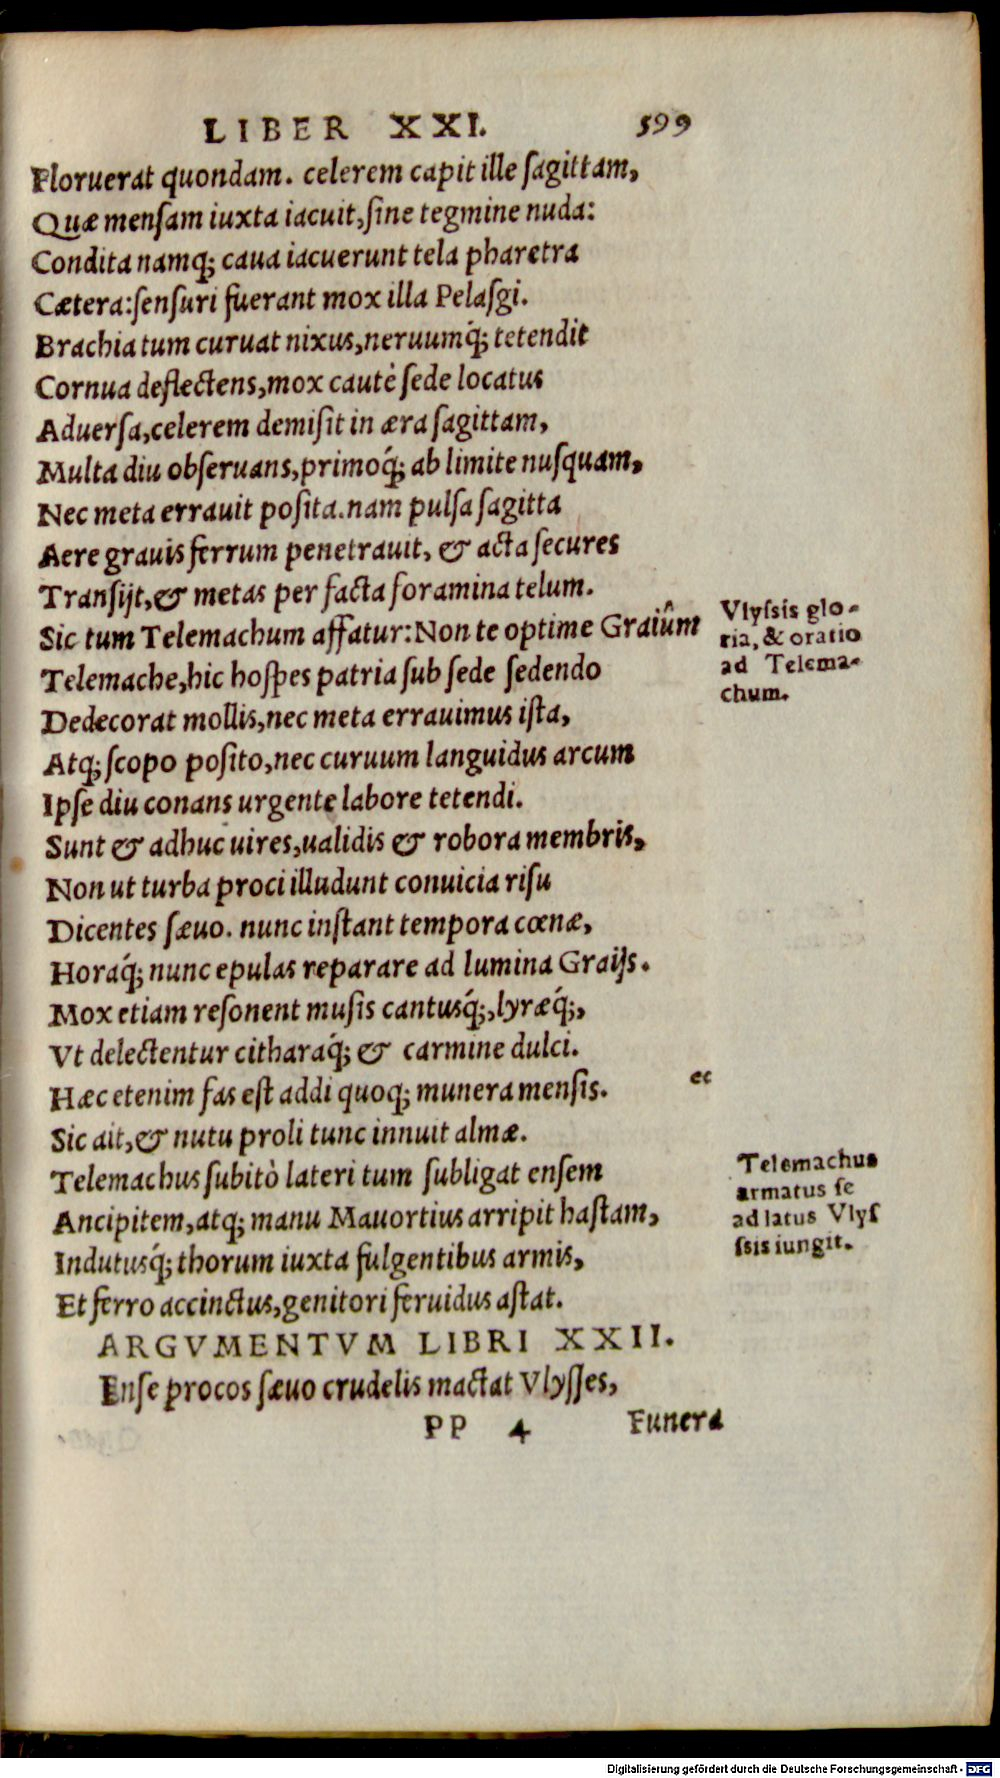 LIBER XXI. 599
Floruerat quondam. celerem capit ille ſagittam,
Quæ menſam iuxta iacuit, ſine tegmine nuda:
Condita namq; caua iacuerunt tela pharetra
Cætera: ſenſuri fuerant mox illa Pelaſgi.
Brachia tum curuat nixus, neruumq́; tetendit
Cornua deflectens, mox cautè ſede locatus
Aduerſa, celerem demiſit in æra ſagittam,
Multa diu obſeruans, primoq́; ab limite nuſquam,
Nec meta errauit poſita. nam pulſa ſagitta
Aere grauis ferrum penetrauit, & acta ſecures
Tranſijt, & metas per facta foramina telum.
Sic tum Telemachum affatur: Non te optime Graiûm
Telemache, hic hoſpes patria ſub ſede ſedendo
Dedecorat mollis, nec meta errauimus iſta,
Atq; ſcopo poſito, nec curuum languidus arcum
Ipſe diu conans urgente labore tetendi.
Sunt & adhuc uires, ualidis & robora membris,
Non ut turba proci illudunt conuicia riſu
Dicentes ſæuo. nunc inſtant tempora cœnæ,
Horaq́; nunc epulas reparare ad lumina Graijs.
Mox etiam reſonent muſis cantusq́;, lyræq́;,
Vt delectentur citharaq́; & carmine dulci.
Hæc etenim fas eſt addi quoq; munera menſis.
Sic ait, & nutu proli tunc innuit almæ.
Telemachus ſubitò lateri tum ſubligat enſem
Ancipitem, atq; manu Mauortius arripit haſtam,
Indutusq́; thorum iuxta fulgentibus armis,
Et ferro accinctus, genitori feruidus aſtat.
Vlyſsis glo-
ria, & oratio
ad Telema-
chum.
ec
Telemachus
armatus ſe
ad latus Vlyſ
ſsis iungit.
ARGVMENTVM LIBRI XXII.
Enſe procos ſæuo crudelis mactat Vlyſſes,
PP 4 Funera
Digitalisierung gefördert durch die Deutsche Forschungsgemeinschaft - DFG